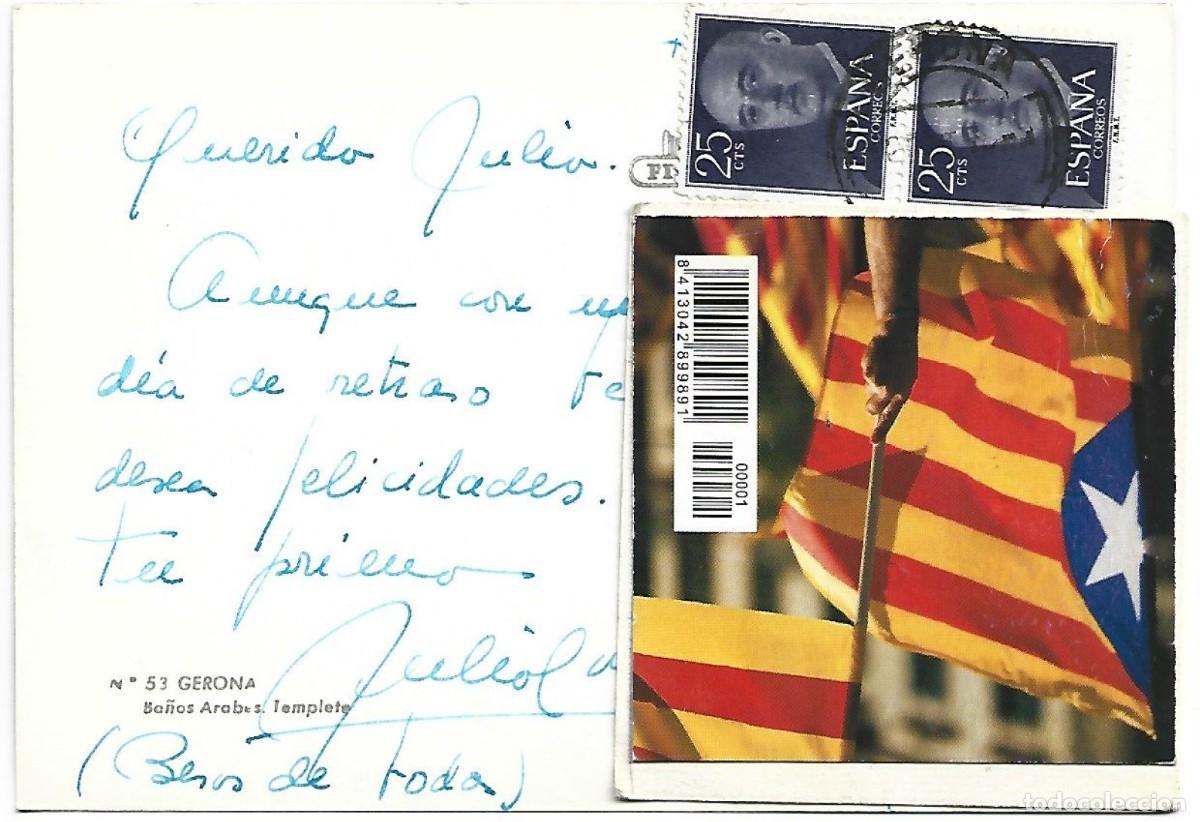 Querido Julio.
Aunque con un
día de retraso te
desea felicidades.
Tu primo
Julio
(Besos de todos)
N° 53 GERONA
Baños Arabes. Templete
25
CTS
ESPAÑA
CORREOS
25
CTS
ESPAÑA
CORREOS
8 413042 899891
00001
todocoleccion